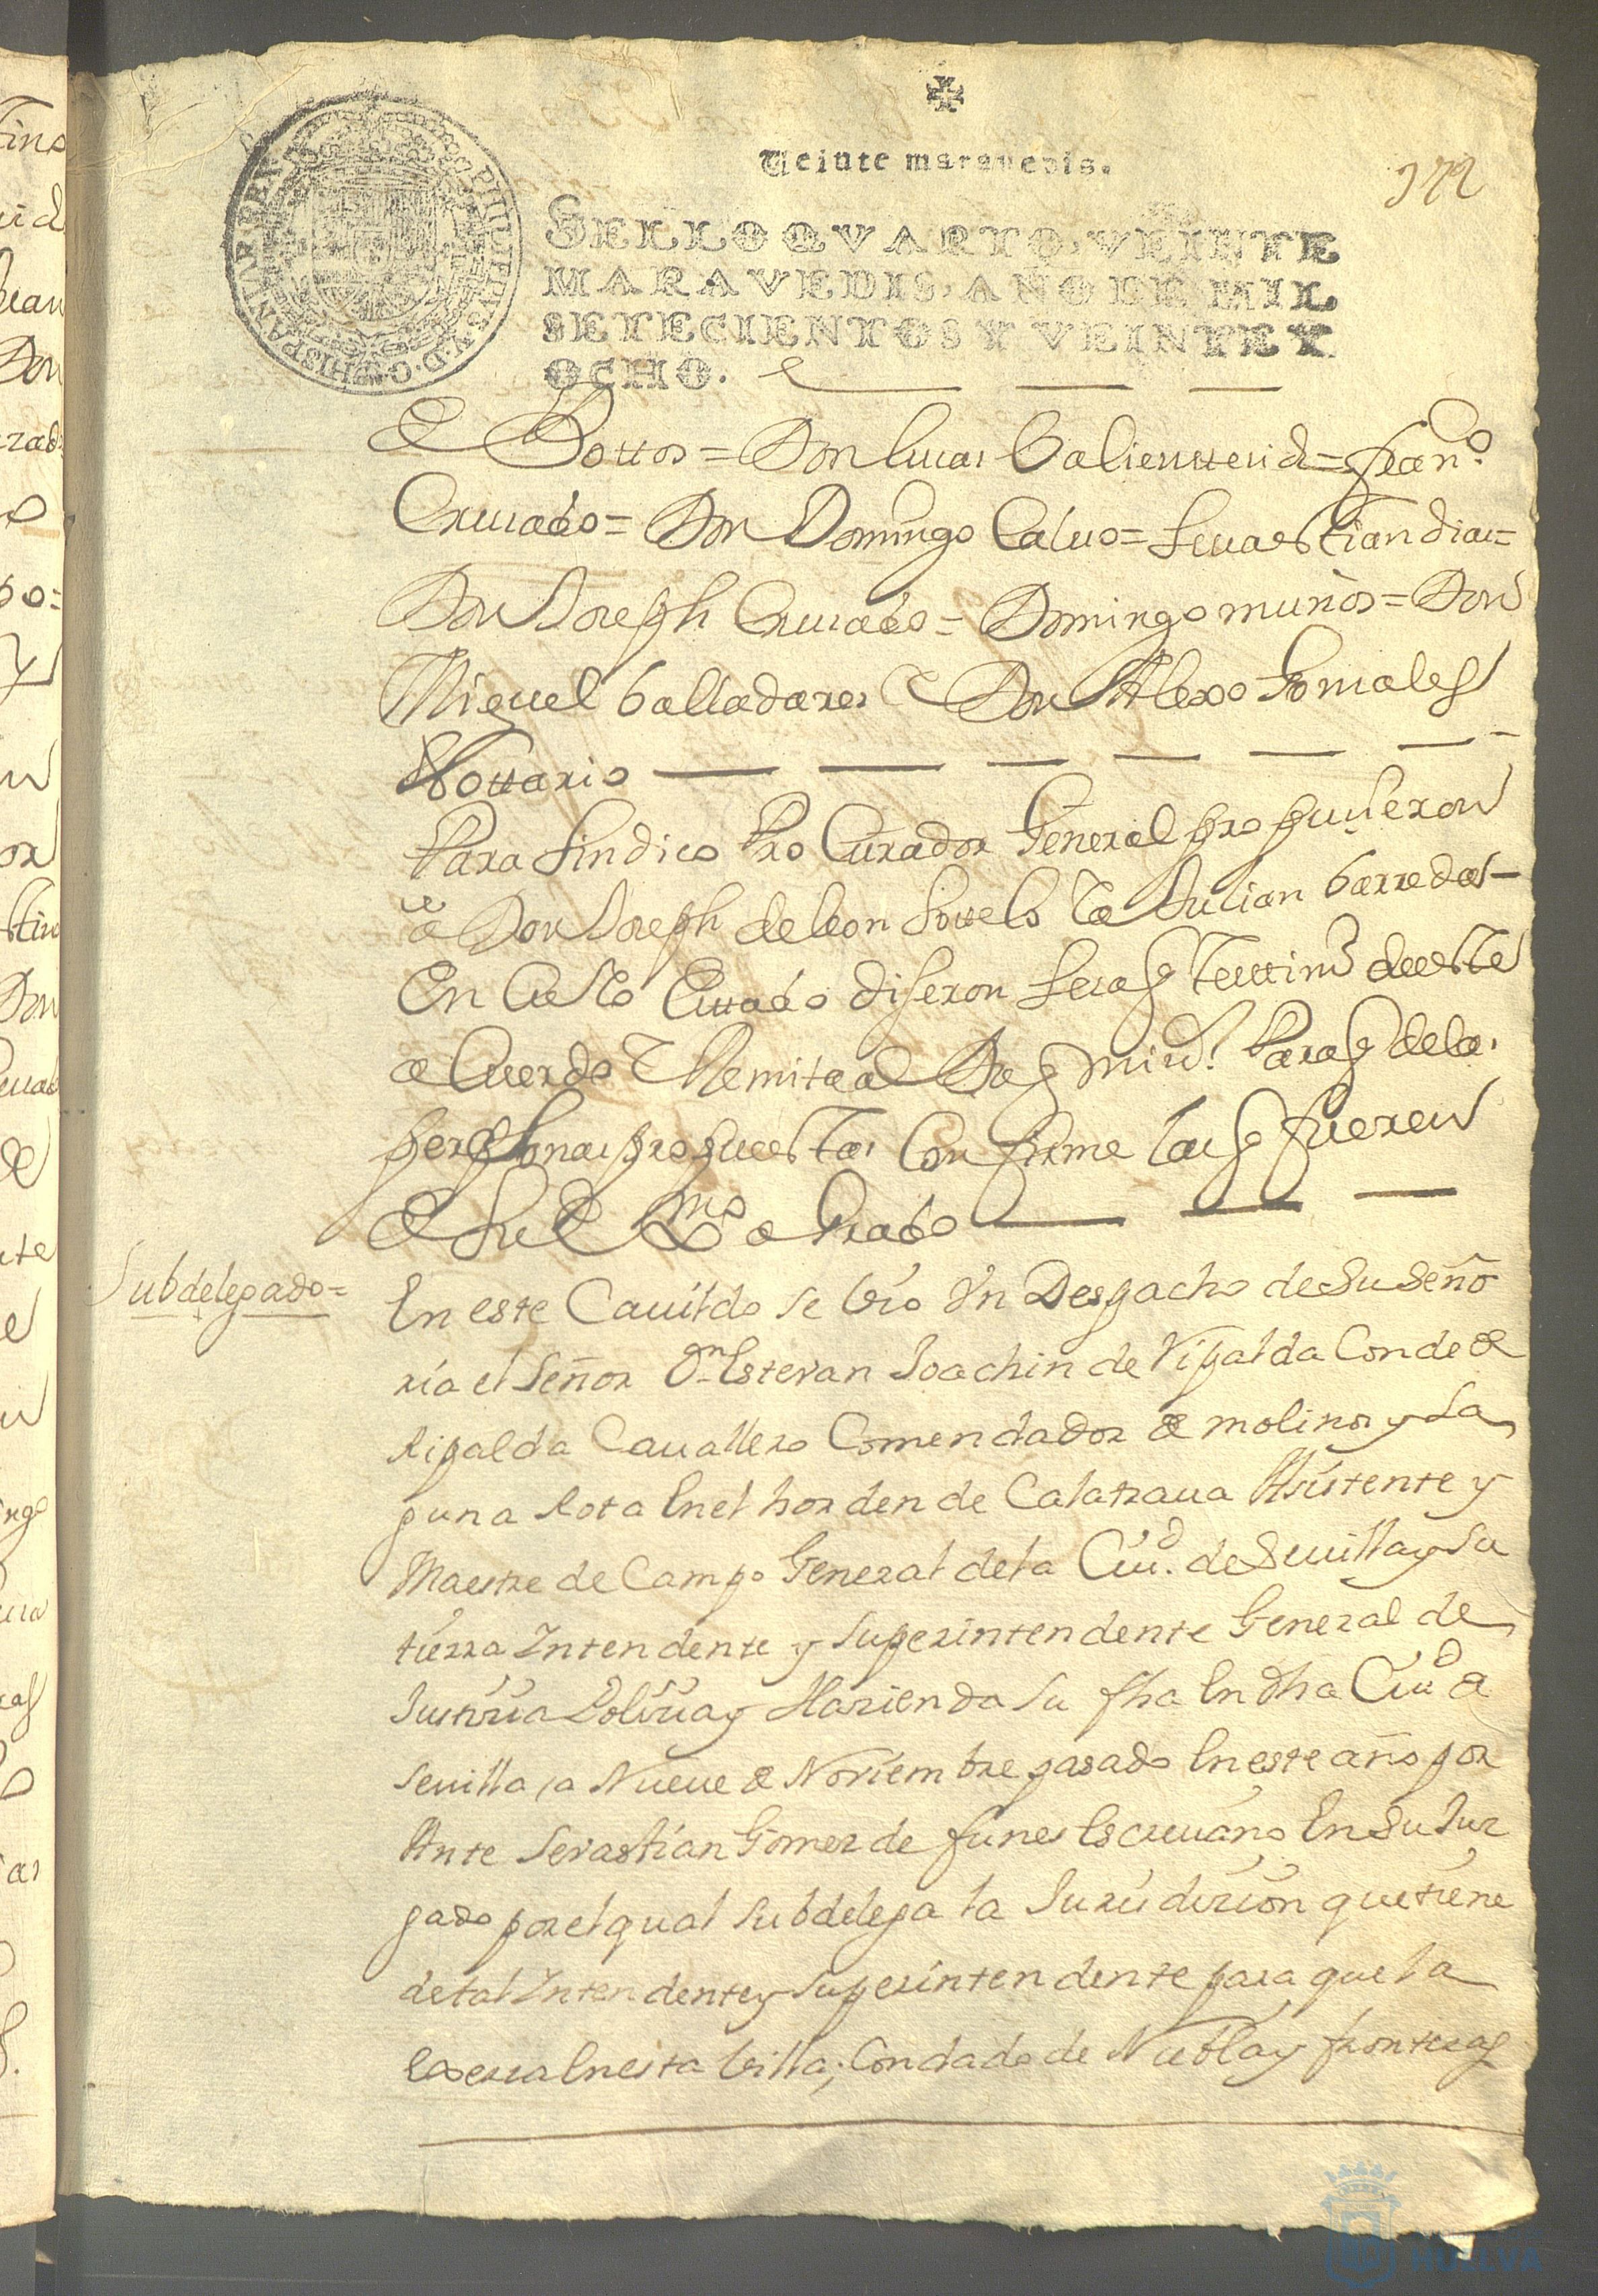 Veinte maravedis.
172
SELLO QVARTO, VEINTE
MARAVEDIS, AÑO DE MIL
SETECIENTOS Y VEINTE Y
OCHO.
PHILIPPUS V. D. G. HISPANIAR. REX
Vottos = Don lucas Valiente = fran.co
Cruzado = Don Domingo Calvo = Sevastian diaz =
Don Joseph Cruzado = Domingo muños = Don
Miguel Valladares Don Alexo Gonzales
Nottario
Para Sindico Procurador General propusieron
a Don Joseph de leon Sottelo a Julian barredas
En Cuio Estado dijeron Se saq testim.o de este
a Cuerdo Remita al Para q de las
personas propuestas Confirme las q fueren
de Su Ex.mo agrado
Subdelegado =
En este Cavildo se bio Vn Despacho de Su Seño
ria el Señor Dn Estevan Joachin de Ripalda Conde de
Ripalda Cavallero Comendador de molinos y La
guna Rota En el horden de Calatrava Asistente y
Maestre de Campo General de la Ciud. de Sevilla y Su
tierra Intendente y Superintendente General de
Justizia Polizia y Hazienda Su fha En dha Ciud de
Sevilla a Nueve de Noviembre pasado En este año por
Ante Sevastian Gomez de funes Escrivano En Su Juz
gado por el qual Subdelega la Jurisdizion que tiene
de tal Intendente y Superintendente para que la
Exerza En esta Villa, Condado de Niebla y fronteras
HUELVA